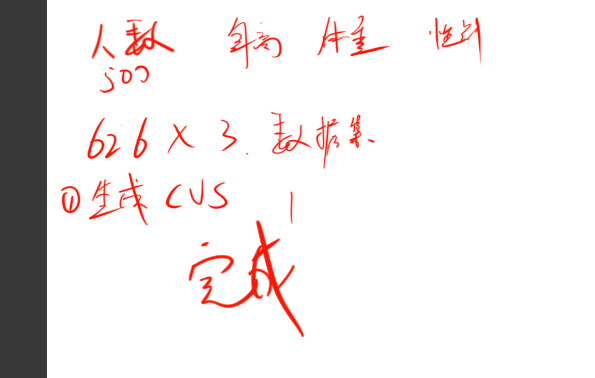 人数 身高 体重 性别
500
626 × 3. 数据集
①生成 CVS
完成